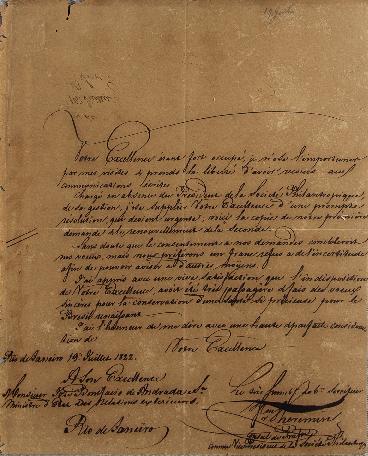 Votre Excellence étant fort occupé, je n'ose l'importuner
par mes visites & prends la liberté d'avoir recours aux
communications écrites.
Chargé en absence du Président de la Société Philantropique,
de sa gestion, j'ose supplier Votre Excellence d'une prompte
résolution, qui devient urgente, voici la copie de notre première
demande & le renouvellement de la seconde.
Sans doute que le consentement à nos demandes comblerait
nos vœux, mais nous préférons un franc refus à de l'incertitude
afin de pouvoir aviser à d'autres moyens.
J'ai appris avec une vive satisfaction que l'indisposition
de Votre Excellence avait été très passagère & fais des vœux
sincères pour la conservation d'une si précieuse pour le
Brésil renaissant.
J'ai l'honneur de me dire avec une haute & parfaite considé-
ration de
Votre Excellence
Rio de Janeiro 19 Juillet 1822.
A Son Excellence
Monsieur José Bonifacio de Andrada
Ministre d'Etat des Relations extérieures
Rio de Janeiro
Le très
Theremin
Consul de Prusse
comme Vice Président de la Société